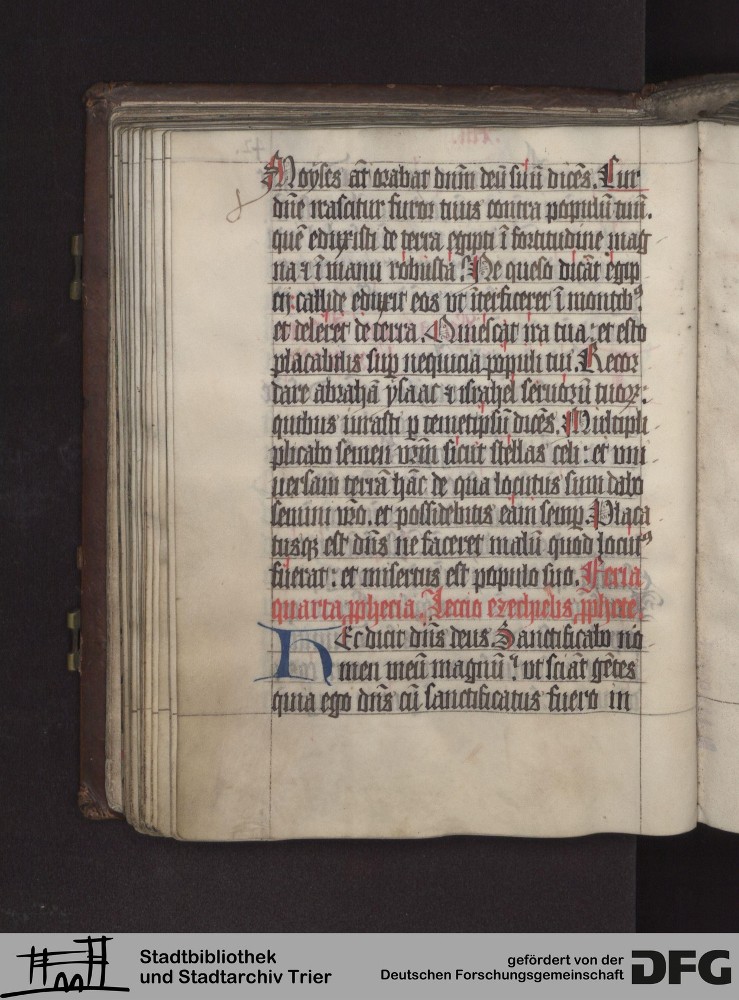 Moyses at̄ orabat dn̄m deū suū dicēs. Cur
dn̄e irascitur furor tuus contra populū tuū.
quē eduxisti de terra egipti ī fortitudine mag
na ⁊ ī manu robusta? Ne queso dicāt egip
tii callide eduxit eos ut īterficeret ī montibꝰ
et deleret de terra. Quiescat ira tua: et esto
placabilis sup̄ nequicia populi tui. Recor
dare abrahā ysaac ⁊ israhel seruorū tuoꝝ:
quibus iurasti ꝑ temetipsū dicēs. Multipli
plicabo semen vr̄m sicut stellas celi: et uni
uersam terrā hāc de qua locutus sum dabo
semini vr̄o. et possidebitis eam semꝑ. Placa
tusqꝫ est dn̄s ne faceret malū quod locutꝰ
fuerat: et misertus est populo suo. Feria
quarta ꝓphecia. Lectio ezechielis ꝓphete.
HEc dicit dn̄s deus Sanctificabo no
men meū magnū: ut sciāt gētes
quia ego dn̄s cū sanctificatus fuero in
Stadtbibliothek
und Stadtarchiv Trier
gefördert von der
Deutschen Forschungsgemeinschaft
DFG